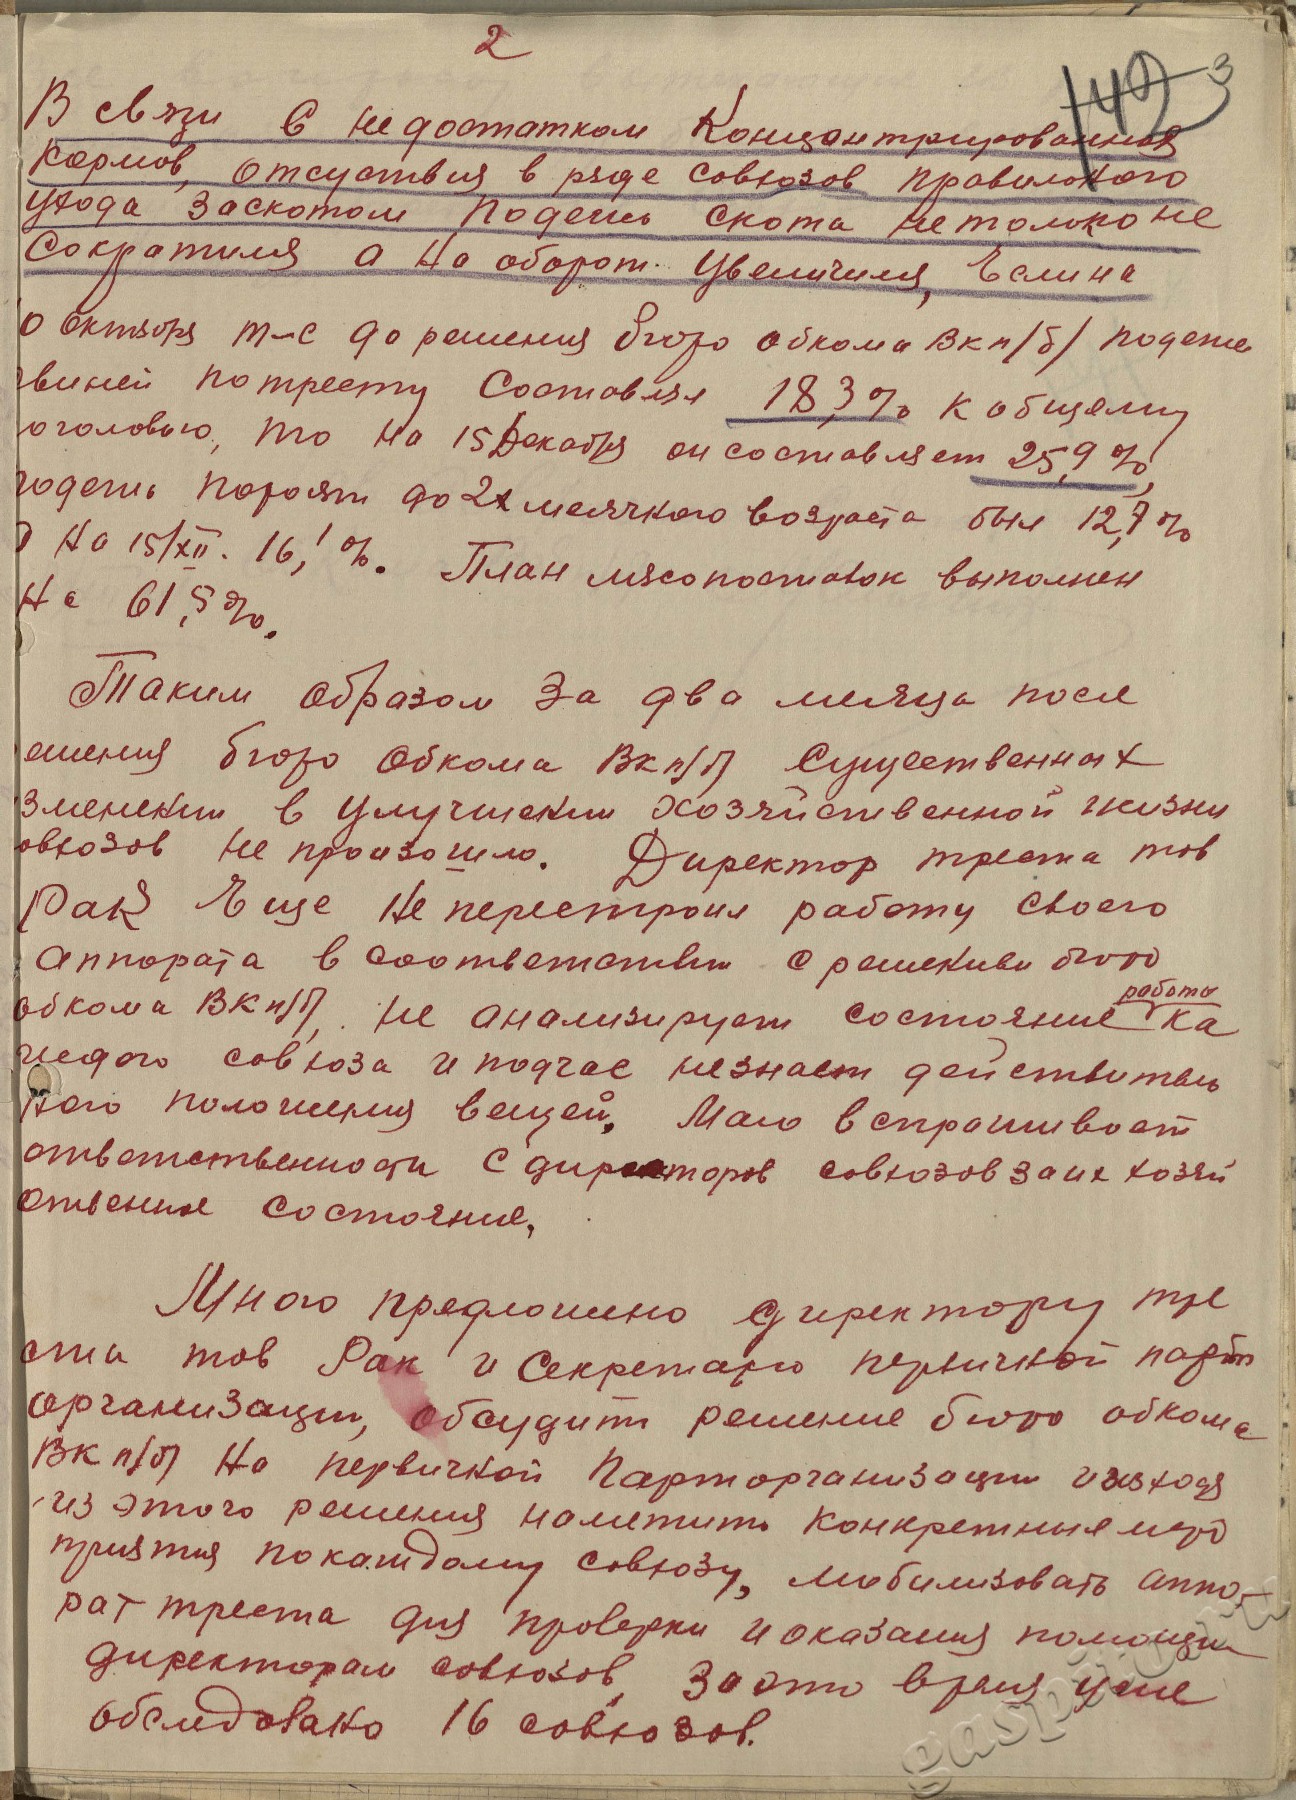 2
142 3
В связи с недостатком Концантрированных
Кормов, отсуствия в ряде совхозов правильного
ухода заскотом падежь скота нетолько не
Сократился а на оборот увеличился, Еслина
10 октября т-с до решения бюро обкома Вкп/б/ падеж
свиней потресту Составлял 18,3% к общему
поголовью, то на 15 Декабря он составляет 25,9%,
подежь поросят до 2х месячного возраста был 12,7%
а на 15/XII. 16,1%. План мясопоставок выполнен
на 61,5%.
Таким образом за два месяца после
решения бюро обкома Вкп/б/ Существенных
изменении в улучшении хозяйственной жизни
совхозов не произошло. Директор треста тов
Рак Еще не перестроил работу своего
аппората в соответствии с решениви бюро
обкома Вкп/б/, не анализирует состояние работы ка
ждого совхоза и подчас незнает действитель
ного положения вещей. Мало вспрашивает
ответственности с директоров совхозов заих хозяй
ственные состояние.
Мною предложено директору тре
ста тов Рак и Секретарю первичной парт
организации, обсудить решение бюро обкома
Вкп/б/ на первичной Парторганизации изходя
из этого решения наметить конкретные меро
приятия покаждому совхозу, мобилизовать аппо
рат треста для проверки и оказания помощи
директорам совхозов. За это время уже
обследовано 16 совхозов.
gaspito.ru